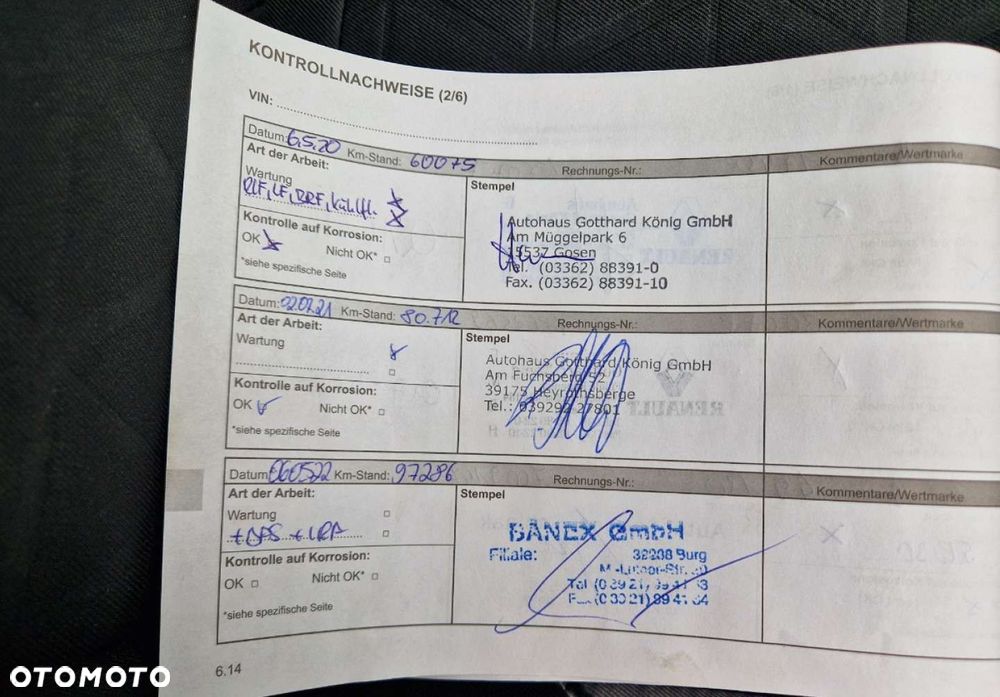 KONTROLLNACHWEISE (2/6)
VIN:
Datum: 6.5.20 Km-Stand: 60075 Rechnungs-Nr.: Kommentare/Wertmarke
Art der Arbeit:
Wartung
Stempel
Autohaus Gotthard König GmbH
Am Müggelpark 6
15537 Gosen
Tel. (03362) 88391-0
Fax. (03362) 88391-10
Kontrolle auf Korrosion:
OK Nicht OK*
*siehe spezifische Seite
Datum: 02.07.21 Km-Stand: 80.712 Rechnungs-Nr.: Kommentare/Wertmarke
Art der Arbeit:
Wartung
Stempel
Autohaus Gotthard König GmbH
Am Fuchsberg 52
39175 Heyrothsberge
Tel.: 039292 27801
RENAULT
Kontrolle auf Korrosion:
OK Nicht OK*
*siehe spezifische Seite
Datum: 060522 Km-Stand: 97286 Rechnungs-Nr.: Kommentare/Wertmarke
Art der Arbeit:
Wartung
Stempel
BÄNEX GmbH
Filiale: Burg
Kontrolle auf Korrosion:
OK Nicht OK*
*siehe spezifische Seite
6.14
OTOMOTO